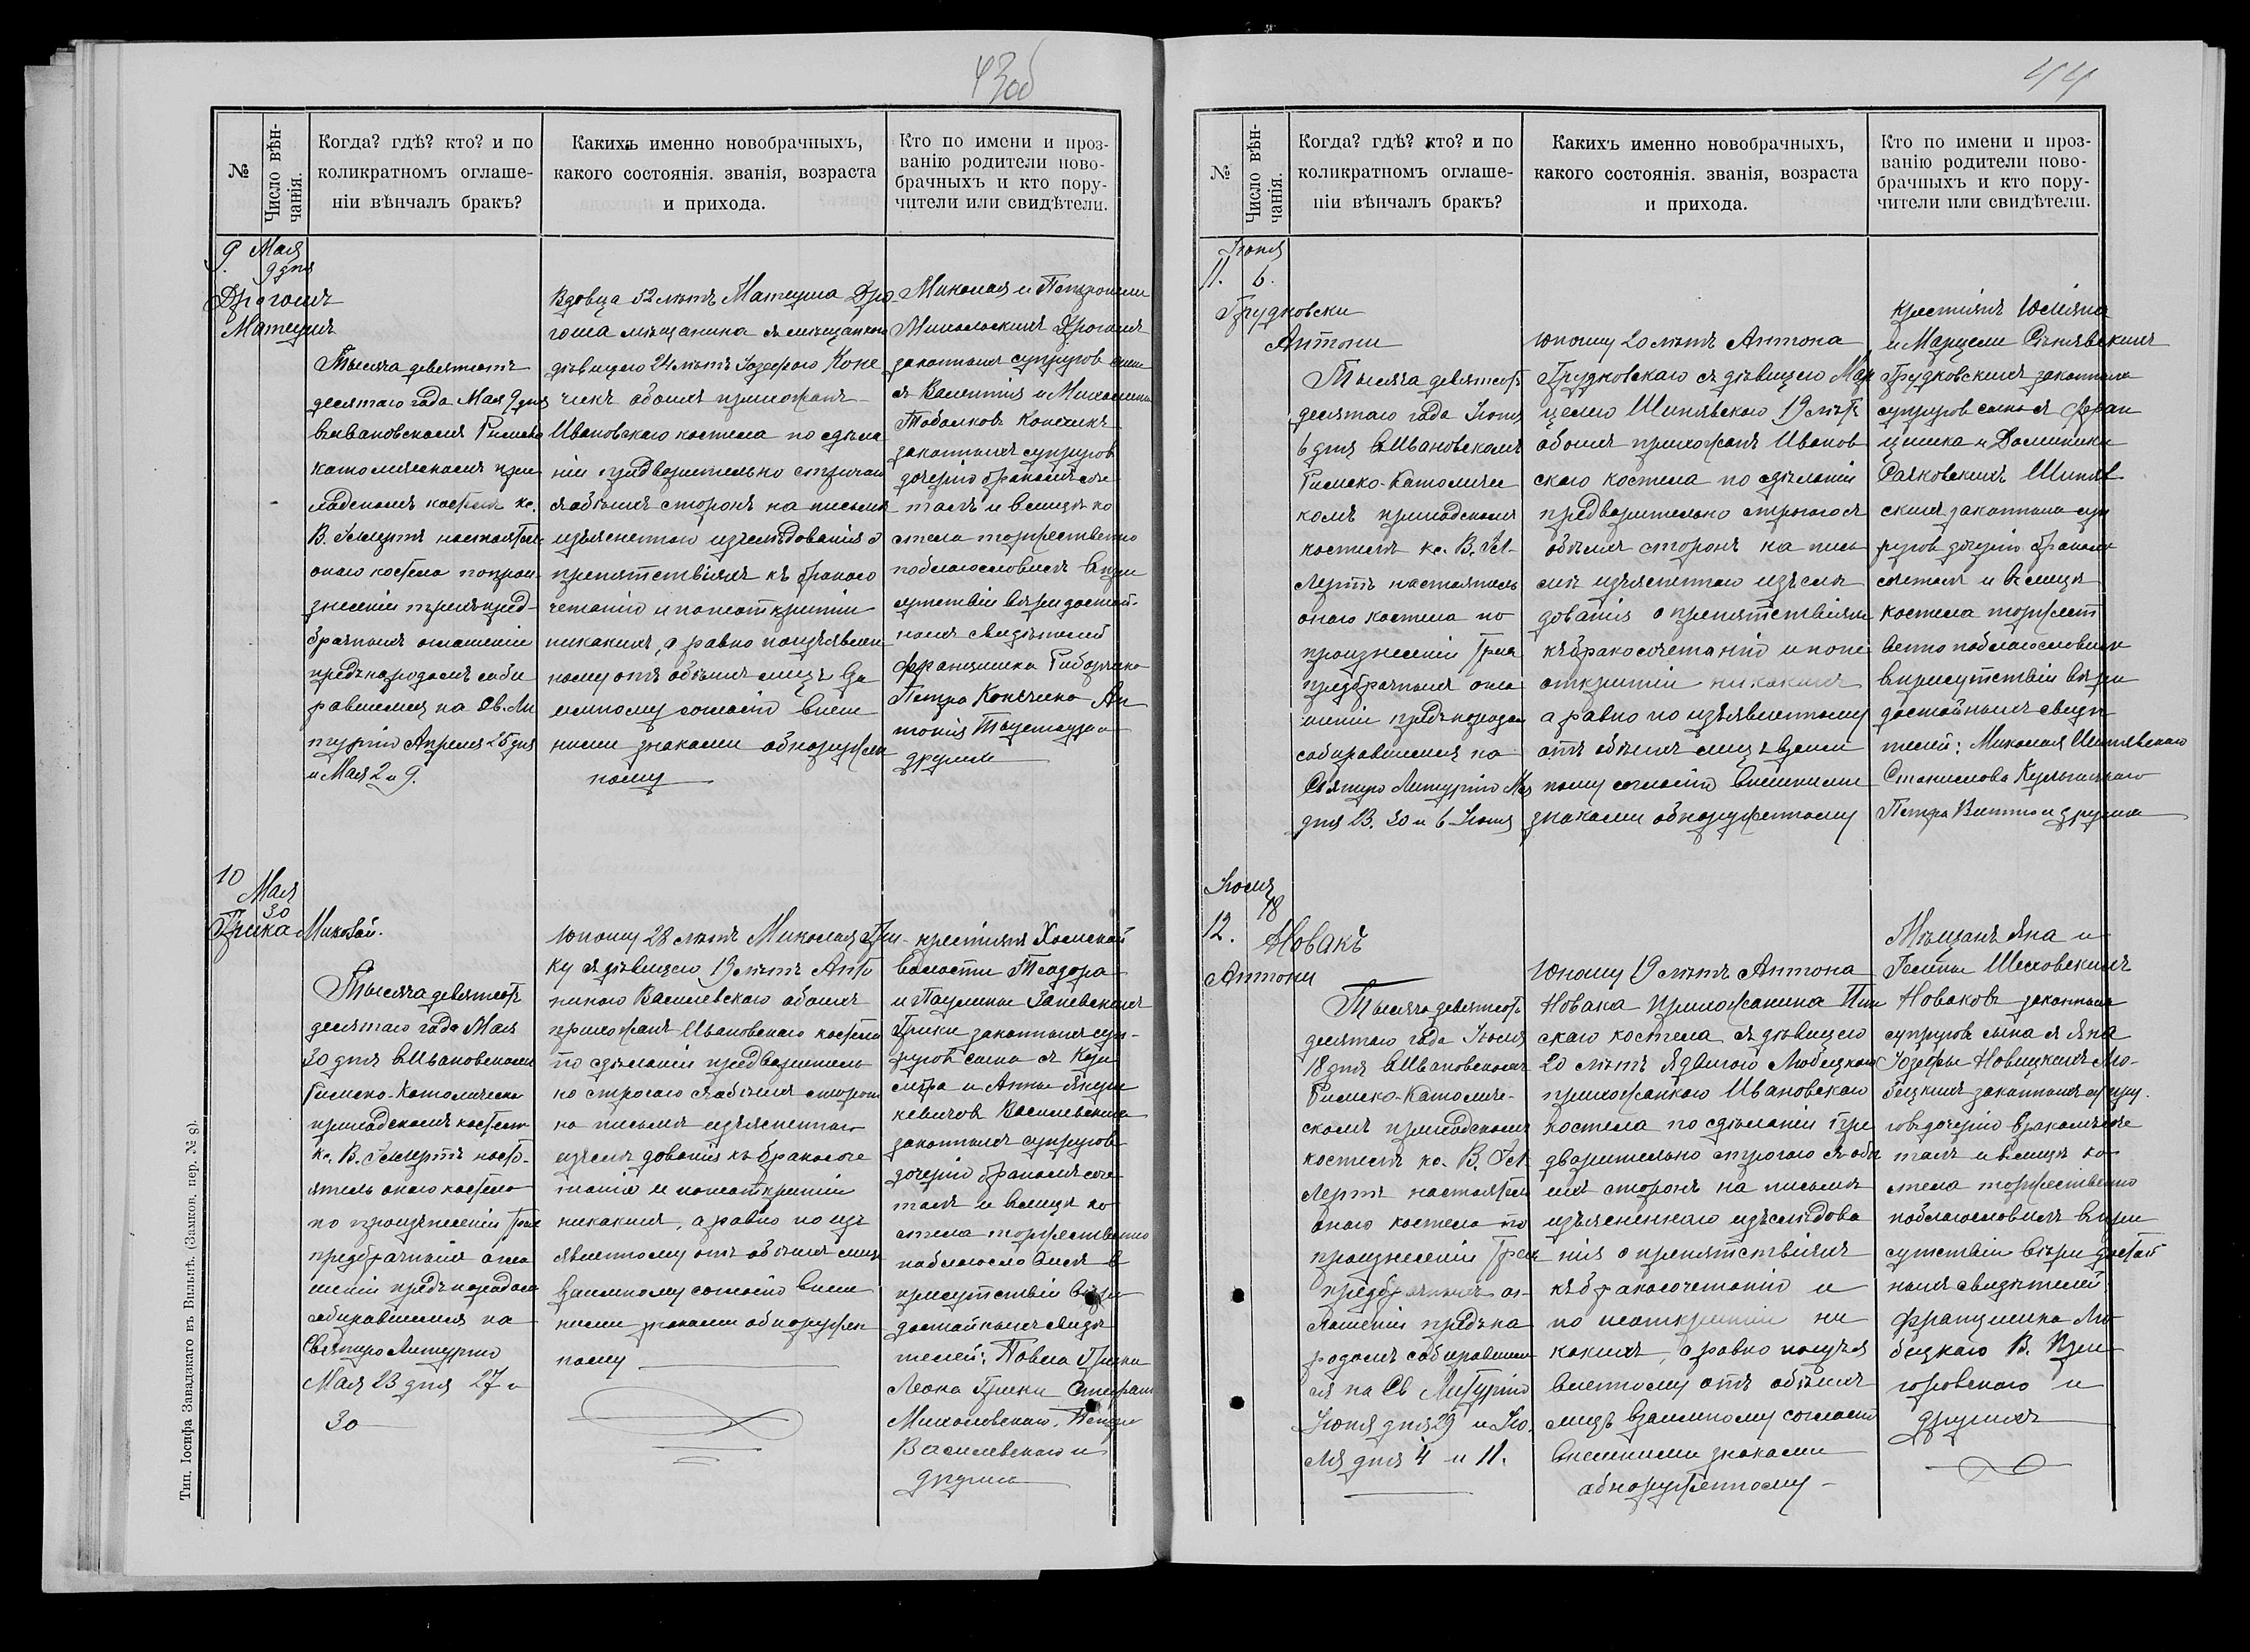 43об
№
Число вѣн-
чанія.
Когда? гдѣ? кто? и по
коликратномъ оглаше-
ніи вѣнчалъ бракъ?
Какихъ именно новобрачныхъ,
какого состоянія. званія, возраста
и прихода.
Кто по имени и проз-
ванію родители ново-
брачныхъ и кто пору-
чители или свидѣтели.
9 Мая
9 дня
Матеушъ
Тысяча девятьсотъ
десятаго года Мая 9 дня
в Ивановскомъ Римско
католическомъ при
ходскомъ костелѣ кс.
В. настоятель
онаго костела по прои-
знесеніи трехъ пред-
брачныхъ оглашеній
предъ народомъ соби
равшемся на Св. Ли
тургію Апрѣля 25 дня
и Мая 2 и 9.
Вдовца 52 лѣтъ Матеуша Дро-
гоша мѣщанина съ мѣщанкою
дѣвицею 24 лѣтъ Юзефою Коне
чикъ обоихъ прихожанъ
Ивановскаго костела по сдѣла
ніи предварительно строгаго
съ обѣихъ сторонъ на письмѣ
изъясненнаго изслѣдованія о
препятствіяхъ къ бракосо
четанію и по неоткрытіи
никакихъ, а равно по изъявлен
ному отъ обѣихъ лицъ вза
имному согласію внеш
ними знаками обнаружен
ному
Миколая и Петронели
законныхъ супруговъ сына
съ Валентія и
Конечикъ
законныхъ супруговъ
дочерію бракомъ соче
талъ и в лицѣ ко
стела торжественно
поблагословилъ в при
сутствіи вѣри достой-
ныхъ свидѣтелей
Францишка
Петра Конечика Ан
тонія и
другихъ
10
Мая
30
Грика Миколай.
Тысяча девятьсотъ
десятаго года Мая
30 дня в Ивановскомъ
Римско-Католическо
приходскомъ костелѣ
кс. В. насто-
ятель онаго костела
по произнесеніи трехъ
предбрачныхъ огла
шеній предъ народомъ
собиравшемся на
Святую Литургію
Мая 23 дня 27 и
30
Юношу 28 лѣтъ Миколая Гри-
ку съ дѣвицею 19 лѣтъ Анто
ниною Василевскою обоихъ
прихожанъ Ивановскаго костела
по сдѣланіи предваритель
но строгаго съ обѣихъ сторонъ
на письмѣ изъясненнаго
изслѣдованія къ бракосоче
танію и по неоткрытіи
никакихъ, а равно по изъ
явленному отъ обѣихъ лицъ
взаимному согласію внеш
ними знаками обнаружен
ному
крестьянъ Хомской
волости Теодора
и Паулины
Грики законныхъ суп-
руговъ сына съ Кази
міра и Анны Януш
кевичовъ Василевскихъ
законныхъ супруговъ
дочерію бракомъ соче
талъ и в лицѣ ко
стела торжественно
поблагословилъ в
присутствіи вѣри
достойныхъ свидѣ
телей: Павла Грики
Леона Грики Стефана
Михаловскаго, Петра
Василевскаго и
другихъ
Тип. Іосифа Завадзкаго въ Вильнѣ. (Замков. пер. № 8).
44
№
Число вѣн-
чанія.
Когда? гдѣ? кто? и по
коликратномъ оглаше-
ніи вѣнчалъ бракъ?
Какихъ именно новобрачныхъ,
какого состоянія. званія, возраста
и прихода.
Кто по имени и проз-
ванію родители ново-
брачныхъ и кто пору-
чители или свидѣтели.
Іюня
11. 6.
Грудковски
Антони
Тысяча девятьсотъ
десятаго года Іюня
6 дня в Ивановскомъ
Римско-Католичес
комъ приходскомъ
костелѣ кс. В.
настоятель
онаго костела по
произнесеніи трехъ
предбрачныхъ огла
шеній предъ народомъ
собиравшемся на
Святую Литургію Мая
дня 23. 30 и 6 Іюня
Юношу 20 лѣтъ Антона
Грудковскаго съ дѣвицею Мар
целею 19 лѣтъ
обоихъ прихожанъ Иванов
скаго костела по сдѣланіи
предварительно строгаго съ
обѣихъ сторонъ на пись
мѣ изъясненнаго изслѣ
дованія о препятствіяхъ
къ бракосочетанію и по не
открытіи никакихъ
а равно по изъявленному
отъ обѣихъ лицъ взаим
ному согласію внешними
знаками обнаруженному
крестьянъ Юліяна
и Марцели
Грудковскихъ законныхъ
супруговъ сына съ Фран
цишка и Доминики
скихъ законныхъ суп
руговъ дочерію бракомъ
сочеталъ и в лицѣ
костела торжест
венно поблагословилъ
в присутствіи вѣри
достойныхъ свидѣ
телей: Миколая
Станислава
Петра и другихъ
Іюля
18
12.
Новакъ
Антони
Тысяча девятьсотъ
десятаго года Іюля
18 дня в Ивановскомъ
Римско-Католиче-
скомъ приходскомъ
костелѣ кс. В.
настоятель
онаго костела по
произнесеніи трехъ
предбрачныхъ ог-
лашеній предъ на
родомъ собиравшем
ся на Св Литургію
Іюня дня 29 и Ію
ля дня 4 и 11.
Юношу 19 лѣтъ Антона
Новака прихожанина Пин
скаго костела съ дѣвицею
20 лѣтъ Ядвигою Любецкою
прихожанкою Ивановскаго
костела по сдѣланіи пре
дварительно строгаго съ обѣ
ихъ сторонъ на письмѣ
изъясненнаго изслѣдова
нія о препятствіяхъ
къ бракосочетанію и
по неоткрытіи ни
какихъ, а равно по изъя
вленному отъ обѣихъ
лицъ взаимному согласію
внешними знаками
обнаруженному
Мѣщанъ Яна и
Новаковъ законныхъ
супруговъ сына съ Яна
Юзефы Новицкихъ Лю-
бецкихъ законныхъ супру.
говъ дочерію бракомъ соче
талъ и в лицѣ ко
стела торжественно
поблагословилъ в при
сутствіи вѣри достой
ныхъ свидѣтелей
Францишка Лю
бецкаго В.
и
другихъ